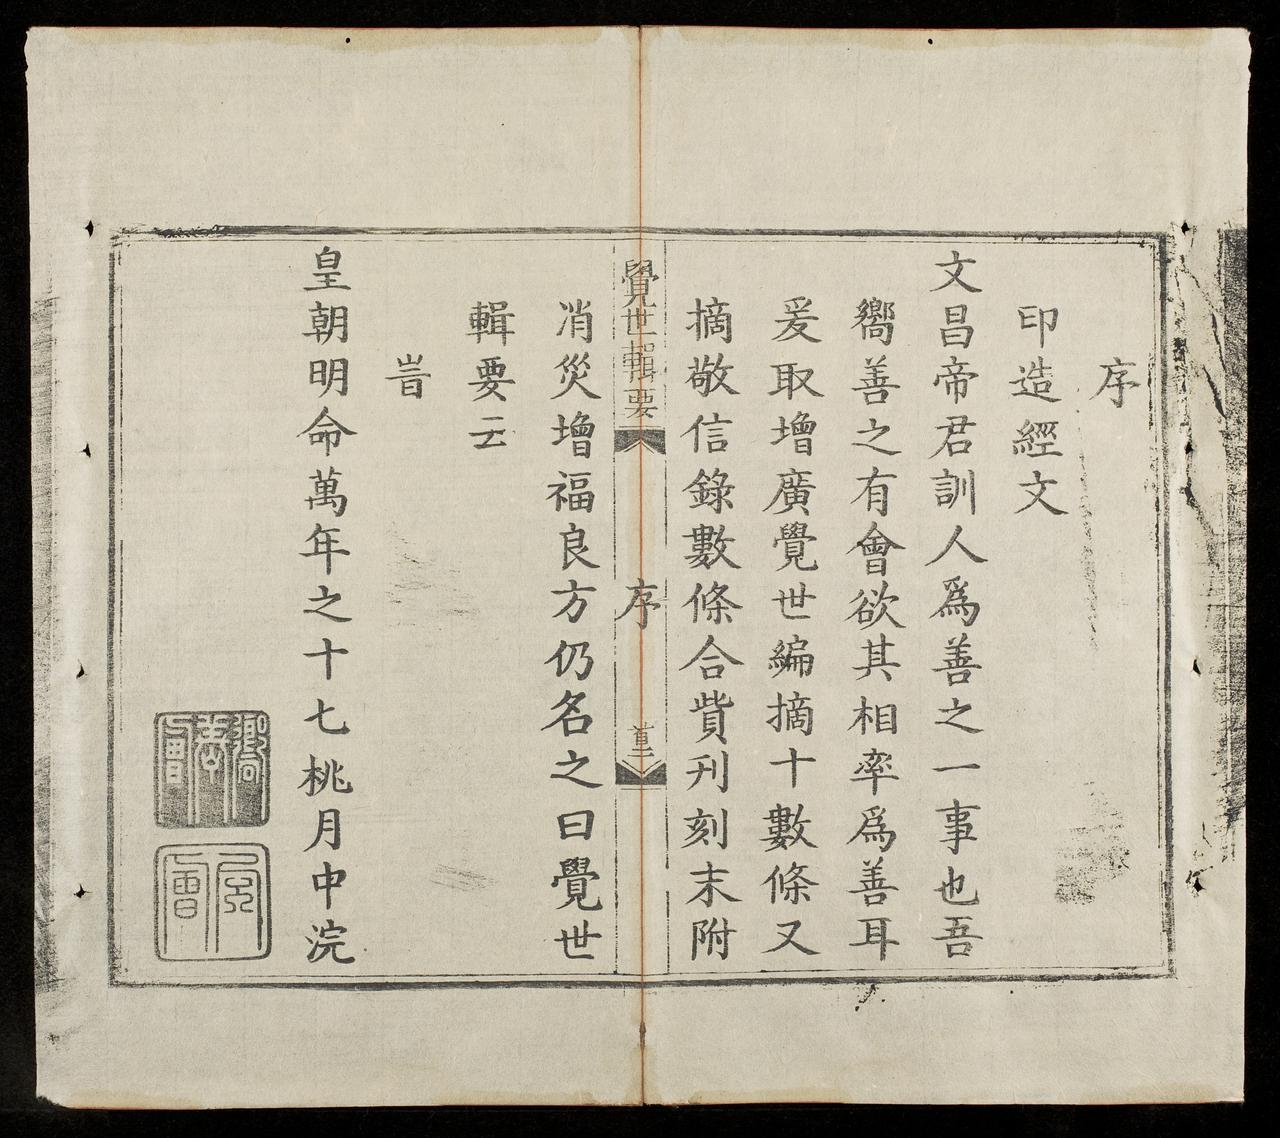 序
印造經文
文昌帝君訓人爲善之一事也吾
嚮善之有會欲其相率爲善耳
爰取增廣覺世編摘十數條又
摘敬信錄數條合貲刊刻末附
覺世輯要
序
消災增福良方仍名之曰覺世
輯要云
旹
皇朝明命萬年之十七桃月中浣
嚮善會